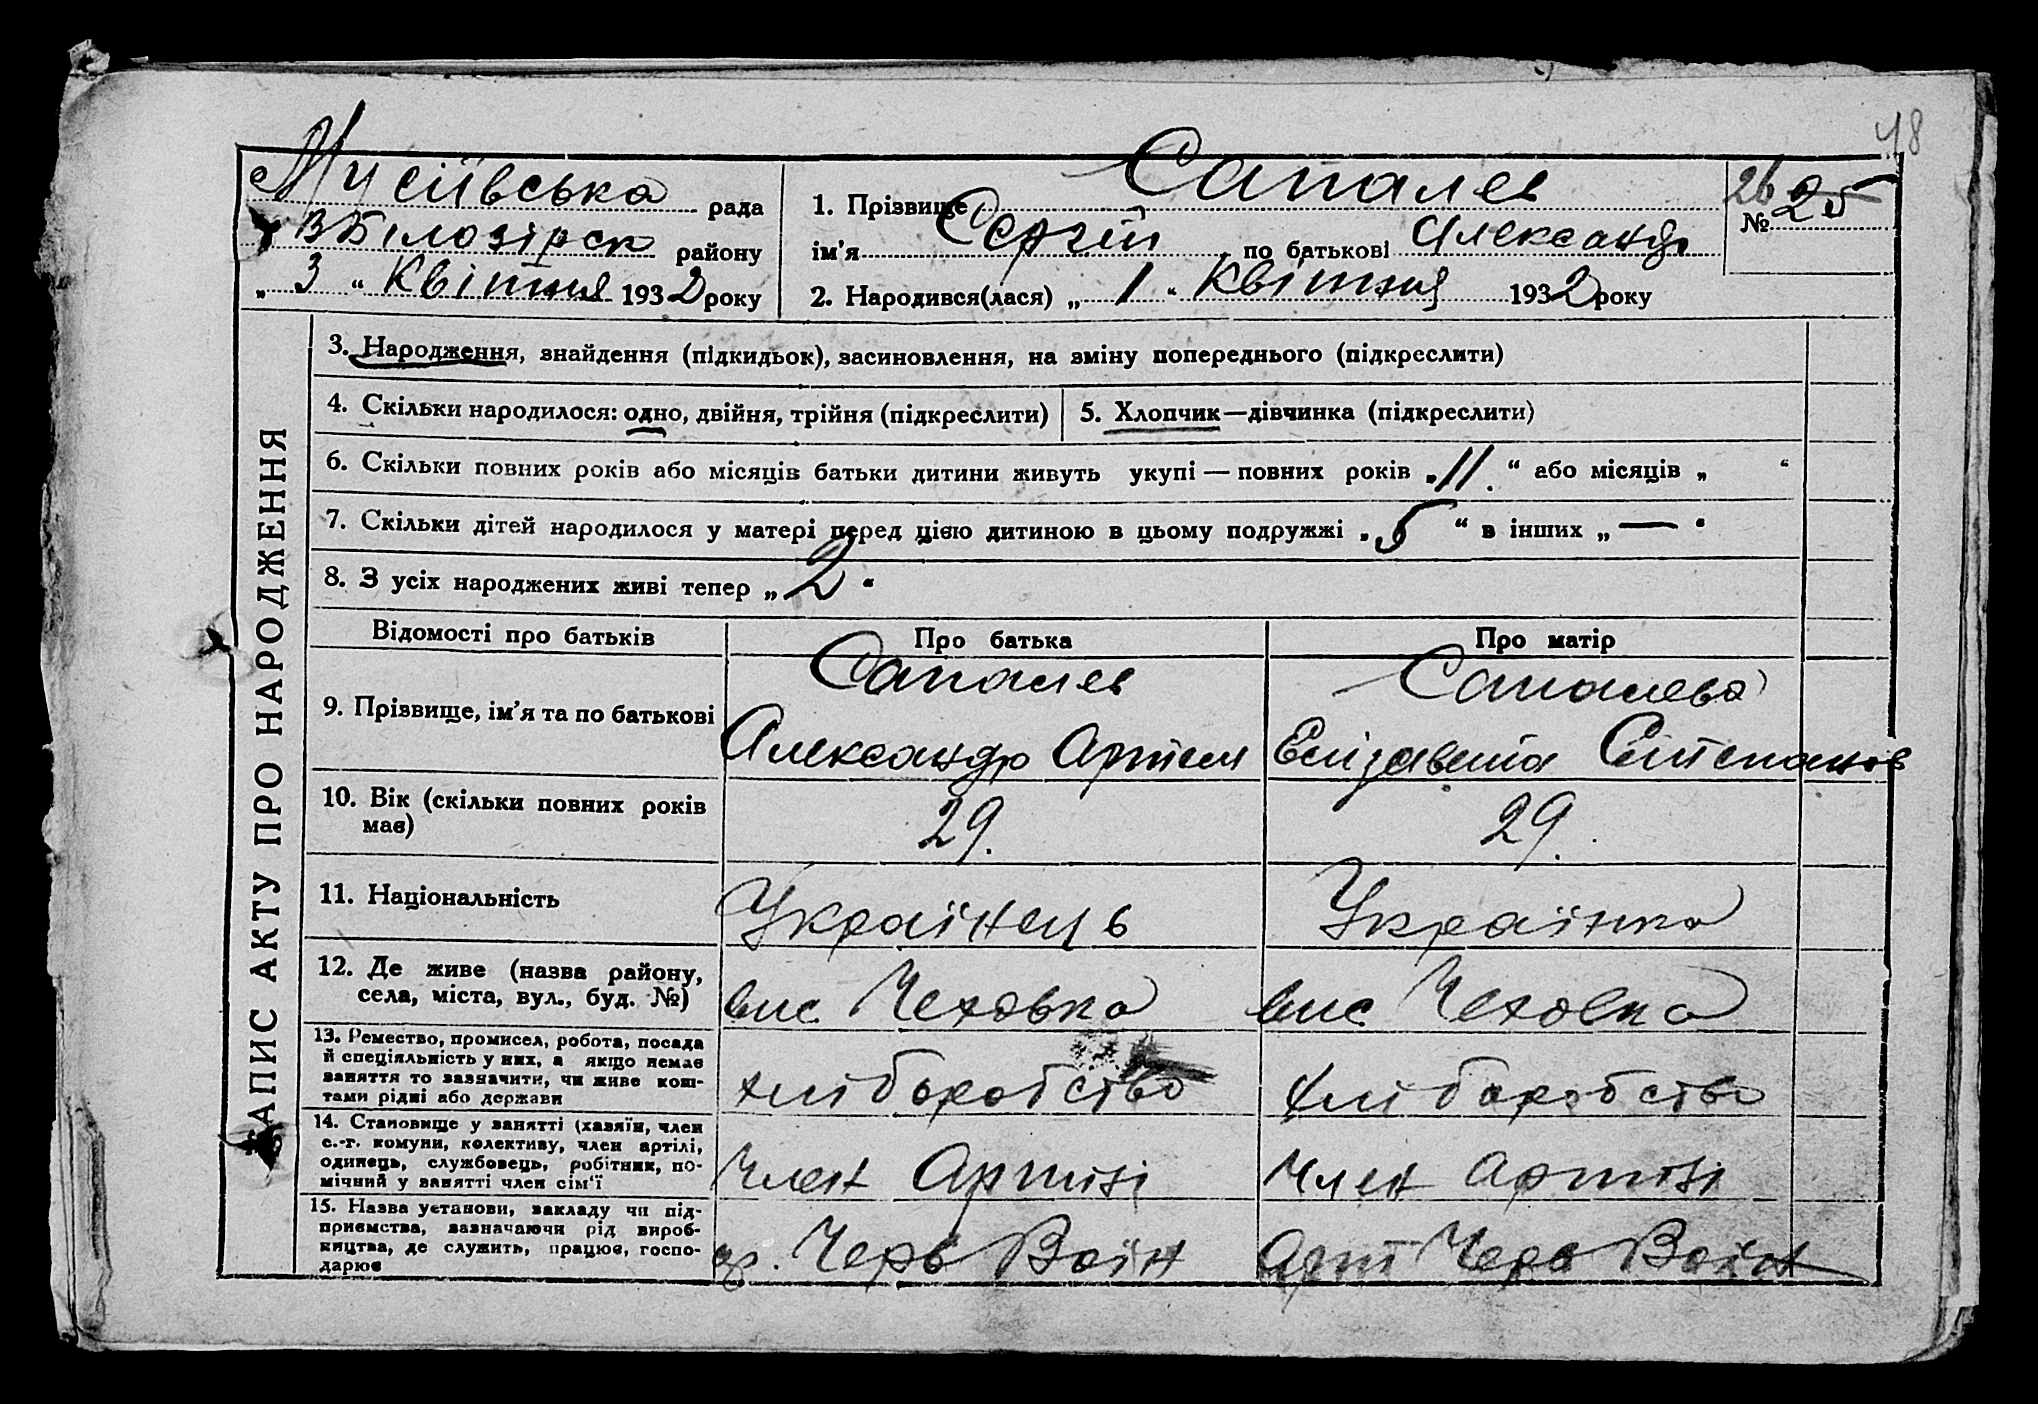 48
Мусіївська рада
В Білозірск району
„ 3 “ Квітня 1932 року
1. Прізвище Сапалев
ім’я Сергій по батькові Александр
2. Народився(лася) „ 1 “ Квітня 1932 року
26
№ 25
ЗАПИС АКТУ ПРО НАРОДЖЕННЯ
3. Народження, знайдення (підкидьок), засиновлення, на зміну попереднього (підкреслити)
4. Скільки народилося: одно, двійня, трійня (підкреслити)
5. Хлопчик—дівчинка (підкреслити)
6. Скільки повних років або місяців батьки дитини живуть укупі — повних років „ 11. “ або місяців „ “
7. Скільки дітей народилося у матері перед цією дитиною в цьому подружжі „ 5 “ в інших „ — “
8. З усіх народжених живі тепер „ 2 “
Відомості про батьків Про батька Про матір
9. Прізвище, ім’я та по батькові
Сапалев
Александр Артем
Сапалева
Елізавета Степанов
10. Вік (скільки повних років
має)
29.
29.
11. Національність
Українець
Українка
12. Де живе (назва району,
села, міста, вул., буд. №)
вис Чеховка
вис Чеховка
13. Ремество, промисел, робота, посада
й спеціяльність у них, а якщо немає
заняття то зазначити, чи живе кош-
тами рідні або держави
хліборобство
хліборобство
14. Становище у занятті (хазяїн, член
с.-г. комуни, колективу, член артілі,
одинець, службовець, робітник, по-
мічний у занятті член сім’ї
Член Артілі
Член артілі
15. Назва установи, закладу чи під-
приємства, зазначаючи рід вироб-
ництва, де служить, працює, госпо-
дарює
ар. Черв Воїн
Арт Черв Воїн